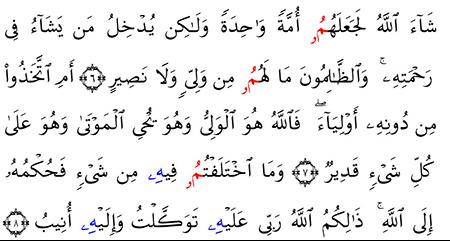 شَآءَ ٱللَّهُ لَجَعَلَهُمُۥٓ أُمَّةٗ وَٰحِدَةٗ وَلَٰكِن يُدۡخِلُ مَن يَشَآءُ فِي
رَحۡمَتِهِۦۚ وَٱلظَّٰلِمُونَ مَا لَهُمُۥ مِن وَلِيّٖ وَلَا نَصِيرٍ ﴿٦﴾ أَمِ ٱتَّخَذُواْ
مِن دُونِهِۦٓ أَوۡلِيَآءَۖ فَٱللَّهُ هُوَ ٱلۡوَلِيُّ وَهُوَ يُحۡيِ ٱلۡمَوۡتَىٰ وَهُوَ عَلَىٰ
كُلِّ شَيۡءٖ قَدِيرٞ ﴿٧﴾ وَمَا ٱخۡتَلَفۡتُمُۥ فِيهِۦ مِن شَيۡءٖ فَحُكۡمُهُۥٓ
إِلَى ٱللَّهِۚ ذَٰلِكُمُ ٱللَّهُ رَبِّي عَلَيۡهِۦ تَوَكَّلۡتُ وَإِلَيۡهِۦ أُنِيبُ ﴿٨﴾